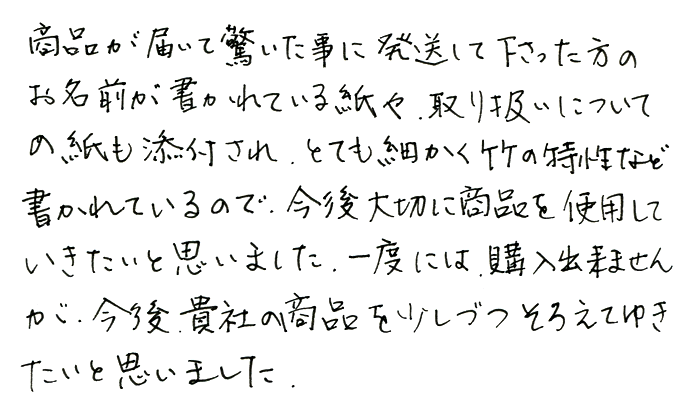 商品が届いて驚いた事に発送して下さった方の
お名前が書かれている紙や、取り扱いについて
の紙も添付され、とても細かく竹の特性など
書かれているので、今後大切に商品を使用して
いきたいと思いました。一度には、購入出来ません
が、今後、貴社の商品を少しづつそろえてゆき
たいと思いました。